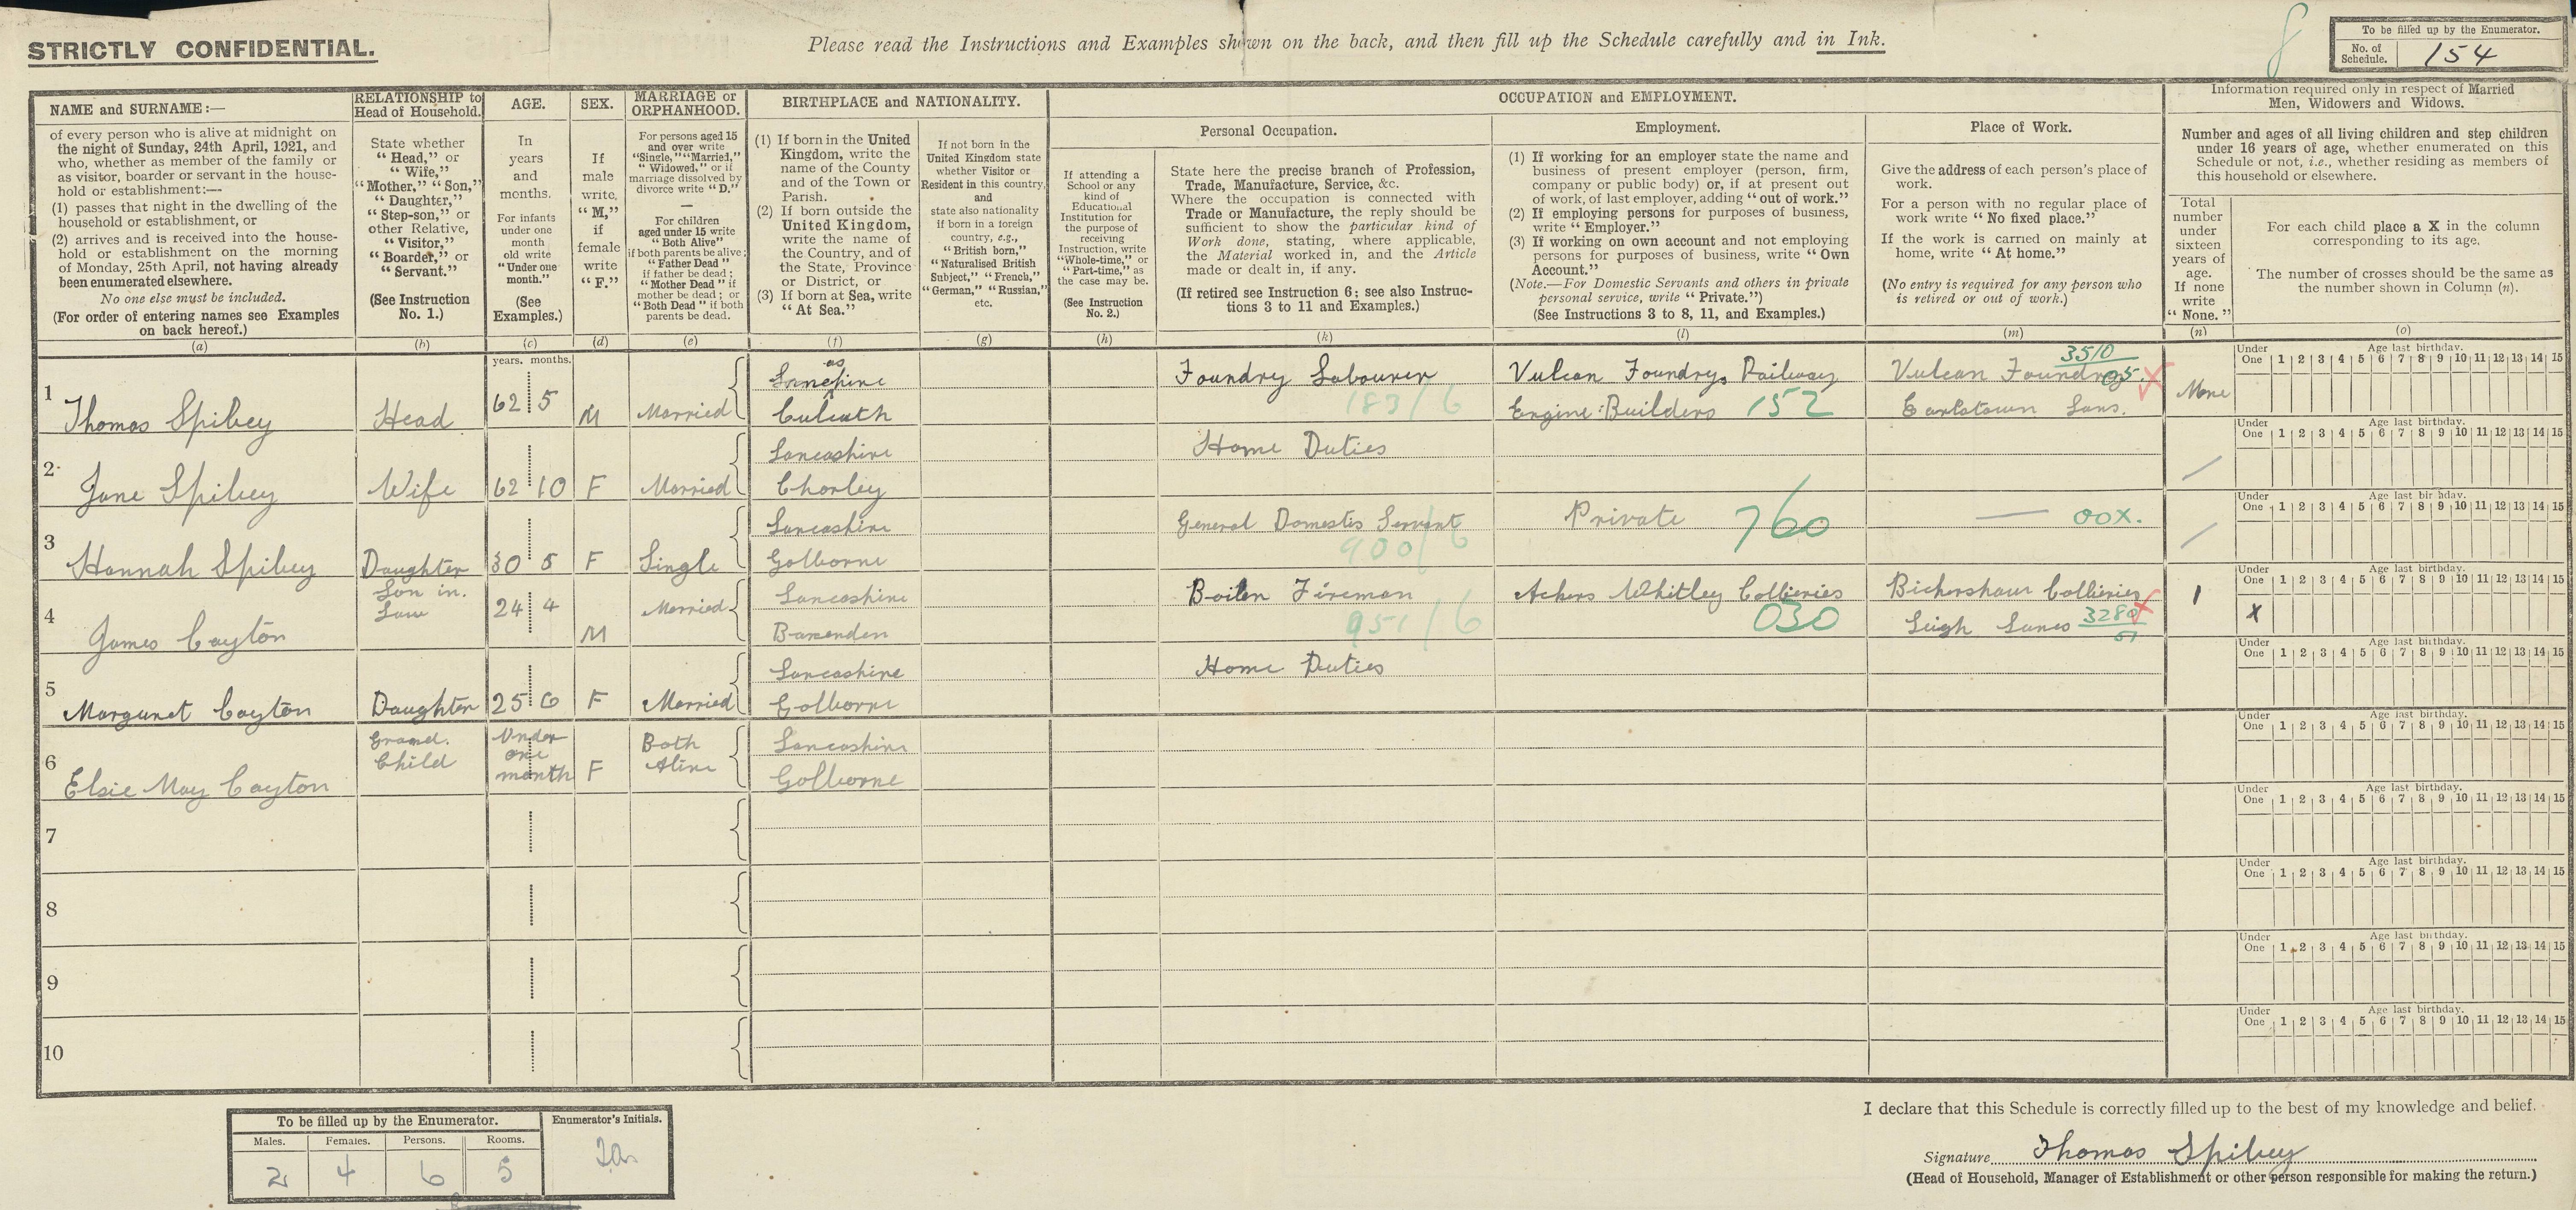 STRICTLY CONFIDENTIAL.
Please read the Instructions and Examples shown on the back, and then fill up the Schedule carefully and in Ink.
8
To be filled up by the Enumerator.
No. of Schedule. 154
NAME and SURNAME:—
of every person who is alive at midnight on
the night of Sunday, 24th April, 1921, and
who, whether as member of the family or
as visitor, boarder or servant in the house-
hold or establishment:—
(1) passes that night in the dwelling of the
household or establishment, or
(2) arrives and is received into the house-
hold or establishment on the morning
of Monday, 25th April, not having already
been enumerated elsewhere.
No one else must be included.
(For order of entering names see Examples
on back hereof.)
(a)
RELATIONSHIP to
Head of Household.
State whether
“Head,” or
“Wife,”
“Mother,” “Son,”
“Daughter,”
“Step-son,” or
other Relative,
“Visitor,”
“Boarder,” or
“Servant.”
(See Instruction
No. 1.)
(b)
AGE.
In
years
and
months.
For infants
under one
month
old write
“Under one
month.”
(See
Examples.)
(c)
SEX.
If
male
write,
“M,”
if
female
write
“F.”
(d)
MARRIAGE or
ORPHANHOOD.
For persons aged 15
and over write
“Single,” “Married,”
“Widowed,” or if
marriage dissolved by
divorce write “D.”
—
For children
aged under 15 write
“Both Alive”
if both parents be alive;
“Father Dead” if
if father be dead;
“Mother Dead” if
mother be dead; or
“Both Dead” if both
parents be dead.
(e)
BIRTHPLACE and NATIONALITY.
(1) If born in the United
Kingdom, write the
name of the County
and of the Town or
Parish.
(2) If born outside the
United Kingdom,
write the name of
the Country, and of
the State, Province
or District, or
(3) If born at Sea, write
“At Sea.”
(f)
If not born in the
United Kingdom state
whether Visitor or
Resident in this country,
and
state also nationality
if born in a foreign
country, e.g.,
“British born,”
“Naturalised British
Subject,” “French,”
“German,” “Russian,”
etc.
(g)
OCCUPATION and EMPLOYMENT.
Personal Occupation.
If attending a
School or any
kind of
Educational
Institution for
the purpose of
receiving
Instruction, write
“Whole-time,” or
“Part-time,” as
the case may be.
(See Instruction
No. 2.)
(h)
State here the precise branch of Profession,
Trade, Manufacture, Service, &c.
Where the occupation is connected with
Trade or Manufacture, the reply should be
sufficient to show the particular kind of
Work done, stating, where applicable,
the Material worked in, and the Article
made or dealt in, if any.
(If retired see Instruction 6; see also Instruc-
tions 3 to 11 and Examples.)
(k)
Employment.
(1) If working for an employer state the name and
business of present employer (person, firm,
company or public body) or, if at present out
of work, of last employer, adding “out of work.”
(2) If employing persons for purposes of business,
write “Employer.”
(3) If working on own account and not employing
persons for purposes of business, write “Own
Account.”
(Note.—For Domestic Servants and others in private
personal service, write “Private.”)
(See Instructions 3 to 8, 11, and Examples.)
(l)
Place of Work.
Give the address of each person's place of
work.
For a person with no regular place of
work write “No fixed place.”
If the work is carried on mainly at
home, write “At home.”
(No entry is required for any person who
is retired or out of work.)
(m)
Information required only in respect of Married
Men, Widowers and Widows.
Number and ages of all living children and step children
under 16 years of age, whether enumerated on this
Schedule or not, i.e., whether residing as members of
this household or elsewhere.
Total
number
under
sixteen
years of
age.
If none
write
“None.”
(n)
For each child place a X in the column
corresponding to its age.
The number of crosses should be the same as
the number shown in Column (n).
(o)
years. months.
Under One Age last birthday. 1 2 3 4 5 6 7 8 9 10 11 12 13 14 15
1 Thomas Spibey Head 62 5 M Married Lancashire Culcuth Foundry Labourer 183/6 Vulcan Foundry, Railway Engine Builders 152 Vulcan Foundry 3510 05. X Earlstown Lans. None
Under One Age last birthday. 1 2 3 4 5 6 7 8 9 10 11 12 13 14 15
2 Jane Spibey Wife 62 10 F Married Lancashire Chorley Home Duties
Under One Age last birthday. 1 2 3 4 5 6 7 8 9 10 11 12 13 14 15
3 Hannah Spibey Daughter 30 5 F Single Lancashire Golborne General Domestic Servant 900/6 Private 760 — 00X.
Under One Age last birthday. 1 2 3 4 5 6 7 8 9 10 11 12 13 14 15
4 James Cayton Son in. Law 24 4 M Married Lancashire Baxenden Boiler Fireman 951/6 Ackers Whitley Collieries 030 Bickershaw Collieries Leigh Lancs 3280 X 1 X
Under One Age last birthday. 1 2 3 4 5 6 7 8 9 10 11 12 13 14 15
5 Margaret Cayton Daughter 25 6 F Married Lancashire Golborne Home Duties
Under One Age last birthday. 1 2 3 4 5 6 7 8 9 10 11 12 13 14 15
6 Elsie May Cayton Grand. Child Under one month F Both Alive Lancashire Golborne
Under One Age last birthday. 1 2 3 4 5 6 7 8 9 10 11 12 13 14 15
7
Under One Age last birthday. 1 2 3 4 5 6 7 8 9 10 11 12 13 14 15
8
Under One Age last birthday. 1 2 3 4 5 6 7 8 9 10 11 12 13 14 15
9
Under One Age last birthday. 1 2 3 4 5 6 7 8 9 10 11 12 13 14 15
10
To be filled up by the Enumerator.
Males. Females. Persons. Rooms.
2 4 6 5
Enumerator's Initials.
I declare that this Schedule is correctly filled up to the best of my knowledge and belief.
Signature Thomas Spibey
(Head of Household, Manager of Establishment or other person responsible for making the return.)